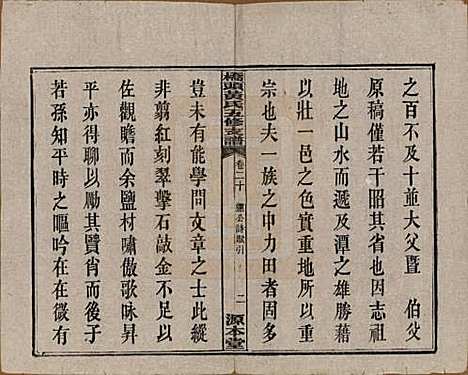 之百不及十並大父暨　伯父
原稿僅若干昭其省也因志祖
地之山水而遞及潭之雄勝藉
以壯一邑之色實重地所以重
宗也夫一族之中力田者固多
橋頭黃氏五修支譜
卷二十
詩賦引
二
源本堂
豈未有能學問文章之士此縱
非翡紅刻翠擊石敲金不足以
佐觀瞻而余鹽材嘯傲歌咏昇
平亦得聊以其賢肖而示後之
若孫知平時之嘔吟在在微有